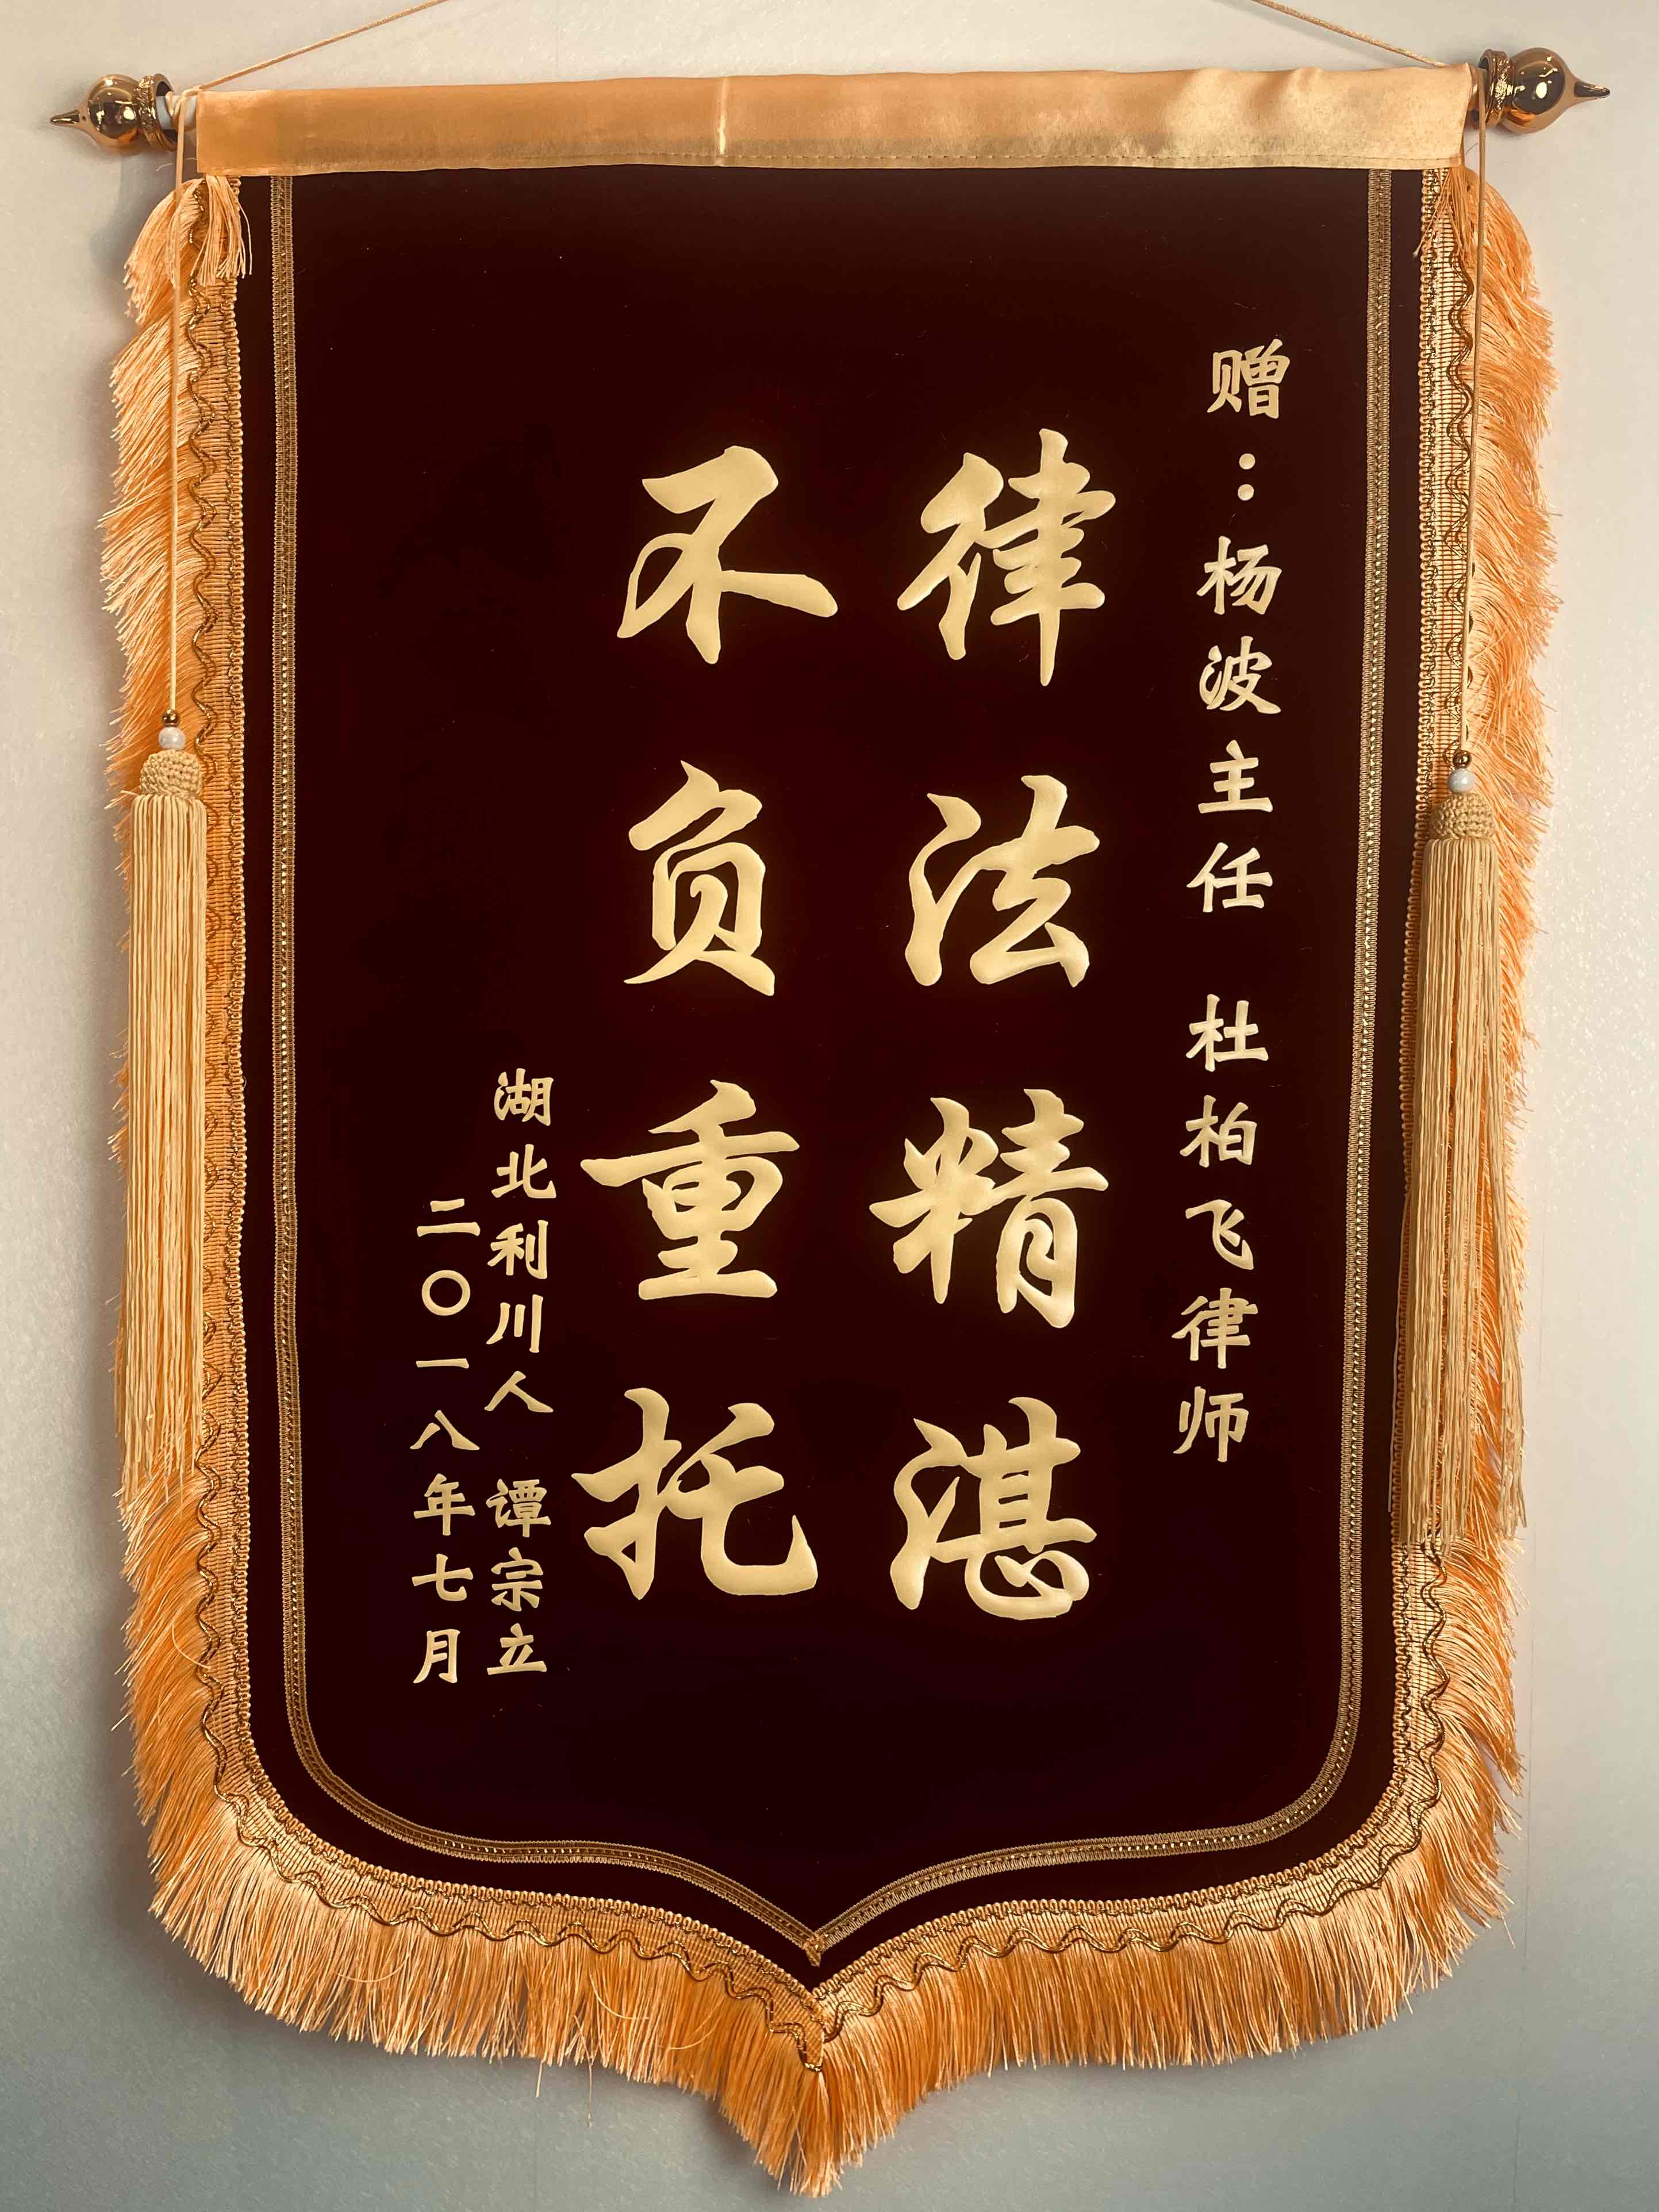 赠：杨波主任 杜柏飞律师
律法精湛
不负重托
湖北利川人 谭宗立
二〇一八年七月